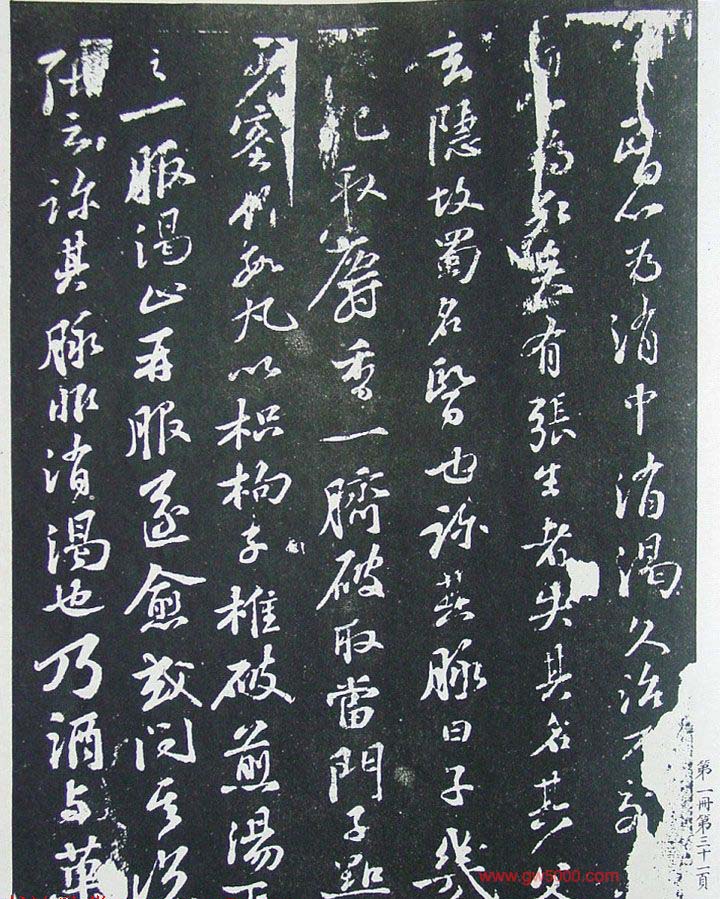 醫以為消中消渴久治不
有張生者失其名其
玄隱故蜀名醫也診其脉曰子幾
取麝香一臍破取當門子
蜜作數丸以枳枸子椎破煎湯下
之一服渴止再服遂愈或問其说
張云診其脉非消渴也乃酒与菓
第一冊第三十一頁
www.gw5000.com